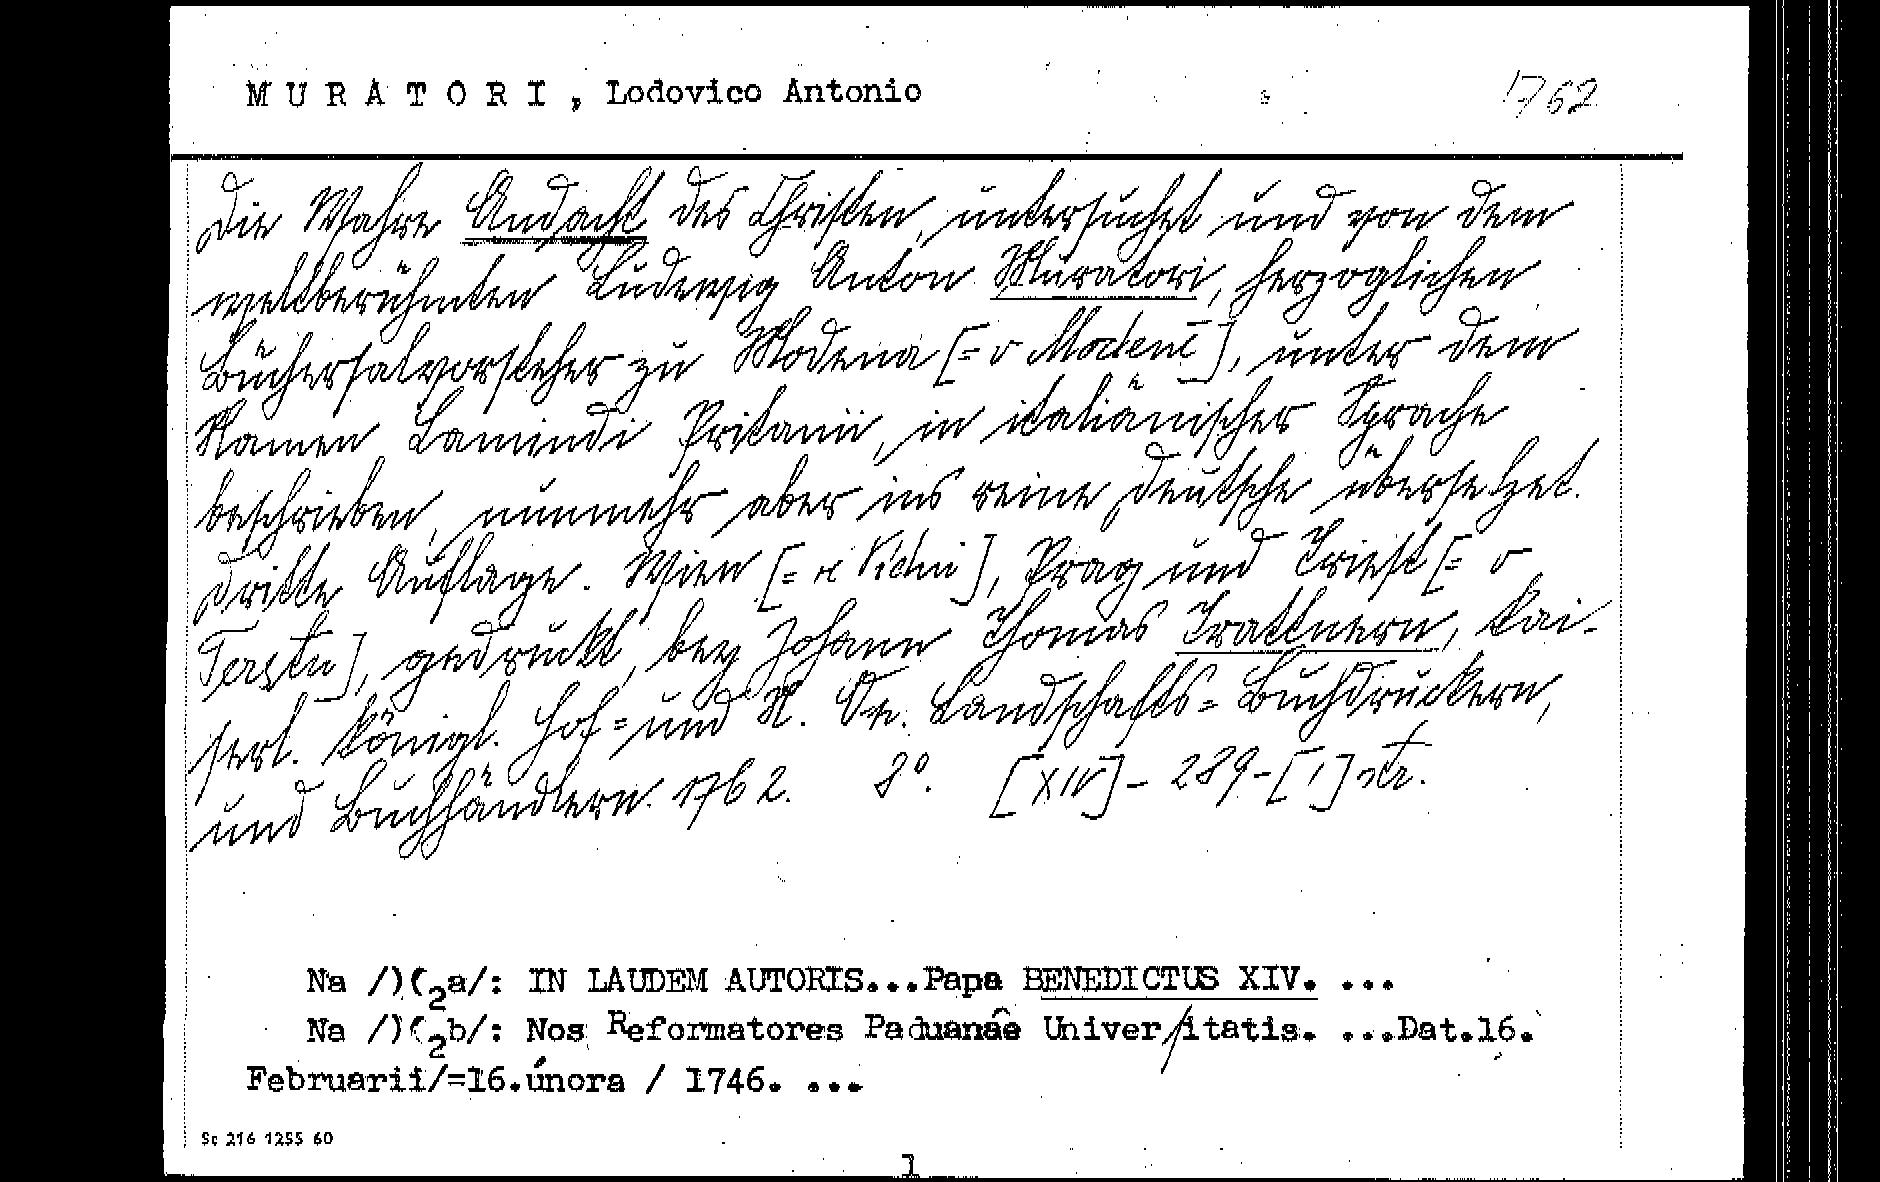 MURATORI, Lodovico Antonio 1762
Die Wahre Andacht des Christen, untersuchet und von dem
weltberühmten Ludewig Anton Muratori, herzoglichen
Büchersalvorsteher zu Modena [= v Modeně], unter dem
Namen Lamindi Pritanii, in italiänischer Sprache
beschrieben, nunmehr aber ins reine Deutsche übersetzet.
Dritte Auflage. Wien [= ve Vídni], Prag und Triest [= v
Terstu], gedruckt, bey Johann Thomas Trattnern, kai-
serl. königl. Hof= und N. Oe. Landschafts= Buchdruckern,
und Buchhändlern. 1762. 8°. [XIV] - 289 - [1] str.
Na /)(2a/: IN LAUDEM AUTORIS...Papa BENEDICTUS XIV. ...
Na /)(2b/: Nos Reformatores Paduanae Univerſitatis. ...Dat.16.
Februarii/=16.února / 1746. ...
Sc 216 1255 60
1